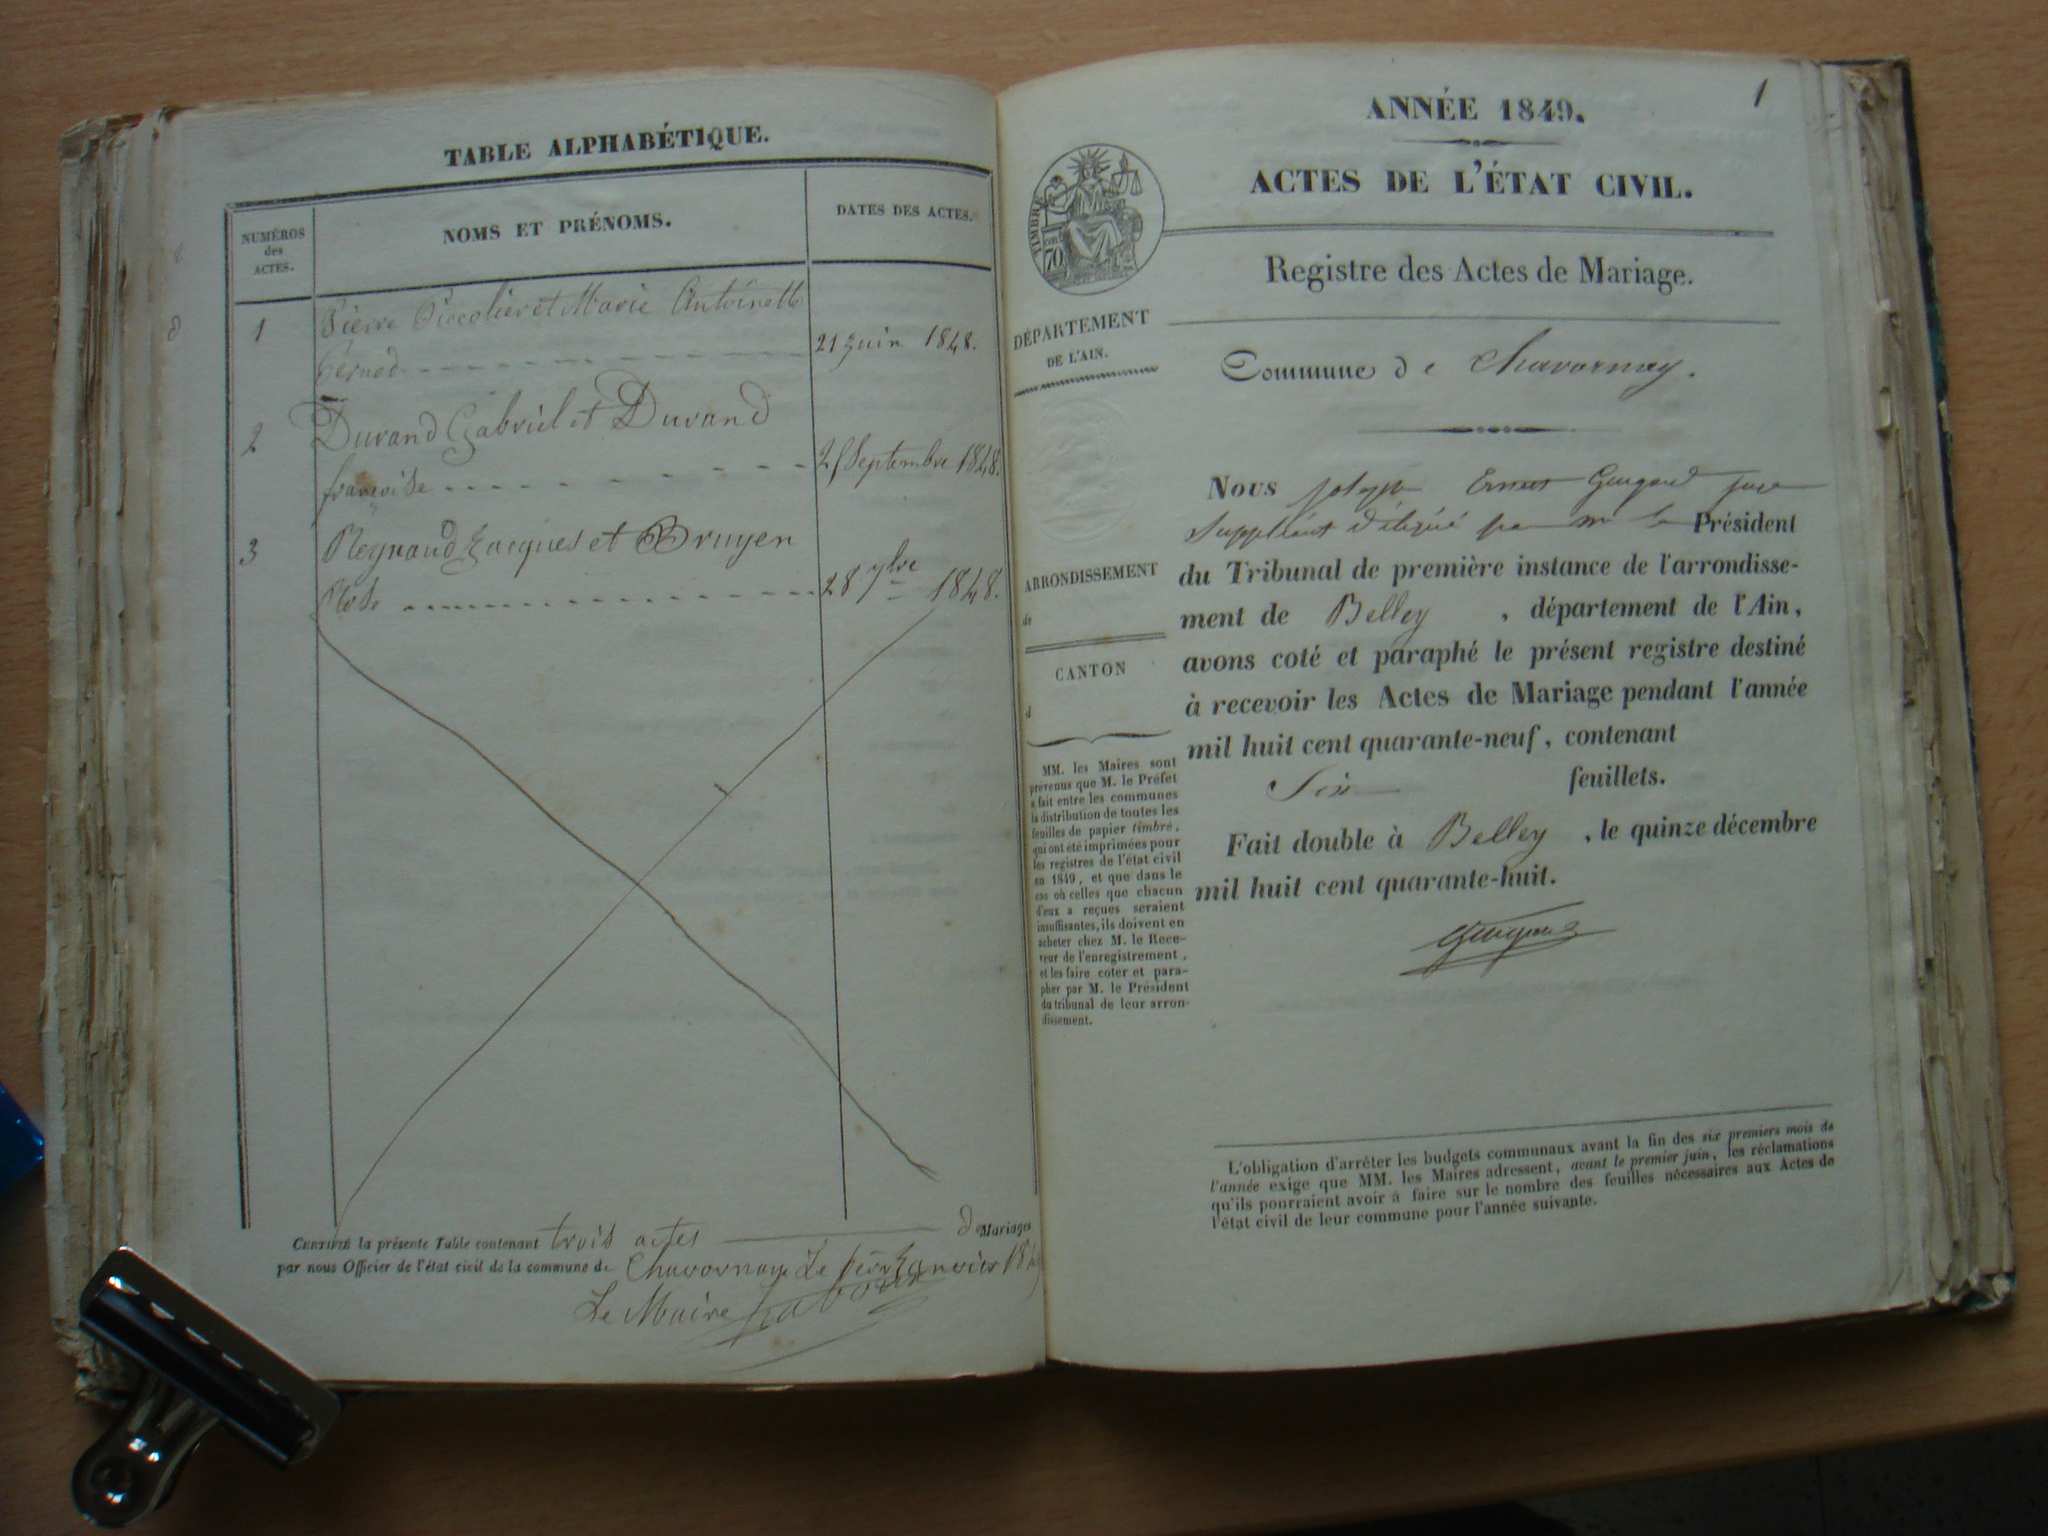 TABLE ALPHABÉTIQUE.
NUMÉROS
des
ACTES.
NOMS ET PRÉNOMS.
DATES DES ACTES.
1
Pierre et Marie Antoinette
21 juin 1848.
2
Durand Gabriel et Durand
françoise
Septembre 1848.
3
Reynaud Jacques et Bruyen
Rose
28 7bre 1848.
CERTIFIÉ la présente Table contenant trois actes de Mariages
par nous Officier de l'état civil de la commune de Chavornay Le
Le Maire
1
ANNÉE 1849.
ACTES DE L'ÉTAT CIVIL.
TIMBRE
70
Registre des Actes de Mariage.
DÉPARTEMENT
DE L'AIN.
Commune de Chavornay.
ARRONDISSEMENT
de
CANTON
d
MM. les Maires sont
prévenus que M. le Préfet
a fait entre les communes
la distribution de toutes les
feuilles de papier timbré,
qui ont été imprimées pour
les registres de l'état civil
en 1849, et que dans le
cas où celles que chacun
d'eux a reçues seraient
insuffisantes, ils doivent en
acheter chez M. le Rece-
veur de l'enregistrement,
et les faire coter et para-
pher par M. le Président
du tribunal de leur arron-
dissement.
Nous Joseph Ernest Guigard juge
suppléant délégué par mr le Président
du Tribunal de première instance de l'arrondisse-
ment de Belley, département de l'Ain,
avons coté et paraphé le présent registre destiné
à recevoir les Actes de Mariage pendant l'année
mil huit cent quarante-neuf, contenant
Six feuillets.
Fait double à Belley, le quinze décembre
mil huit cent quarante-huit.
L'obligation d'arrêter les budgets communaux avant la fin des six premiers mois de
l'année exige que MM. les Maires adressent, avant le premier juin, les réclamations
qu'ils pourraient avoir à faire sur le nombre des feuilles nécessaires aux Actes de
l'état civil de leur commune pour l'année suivante.